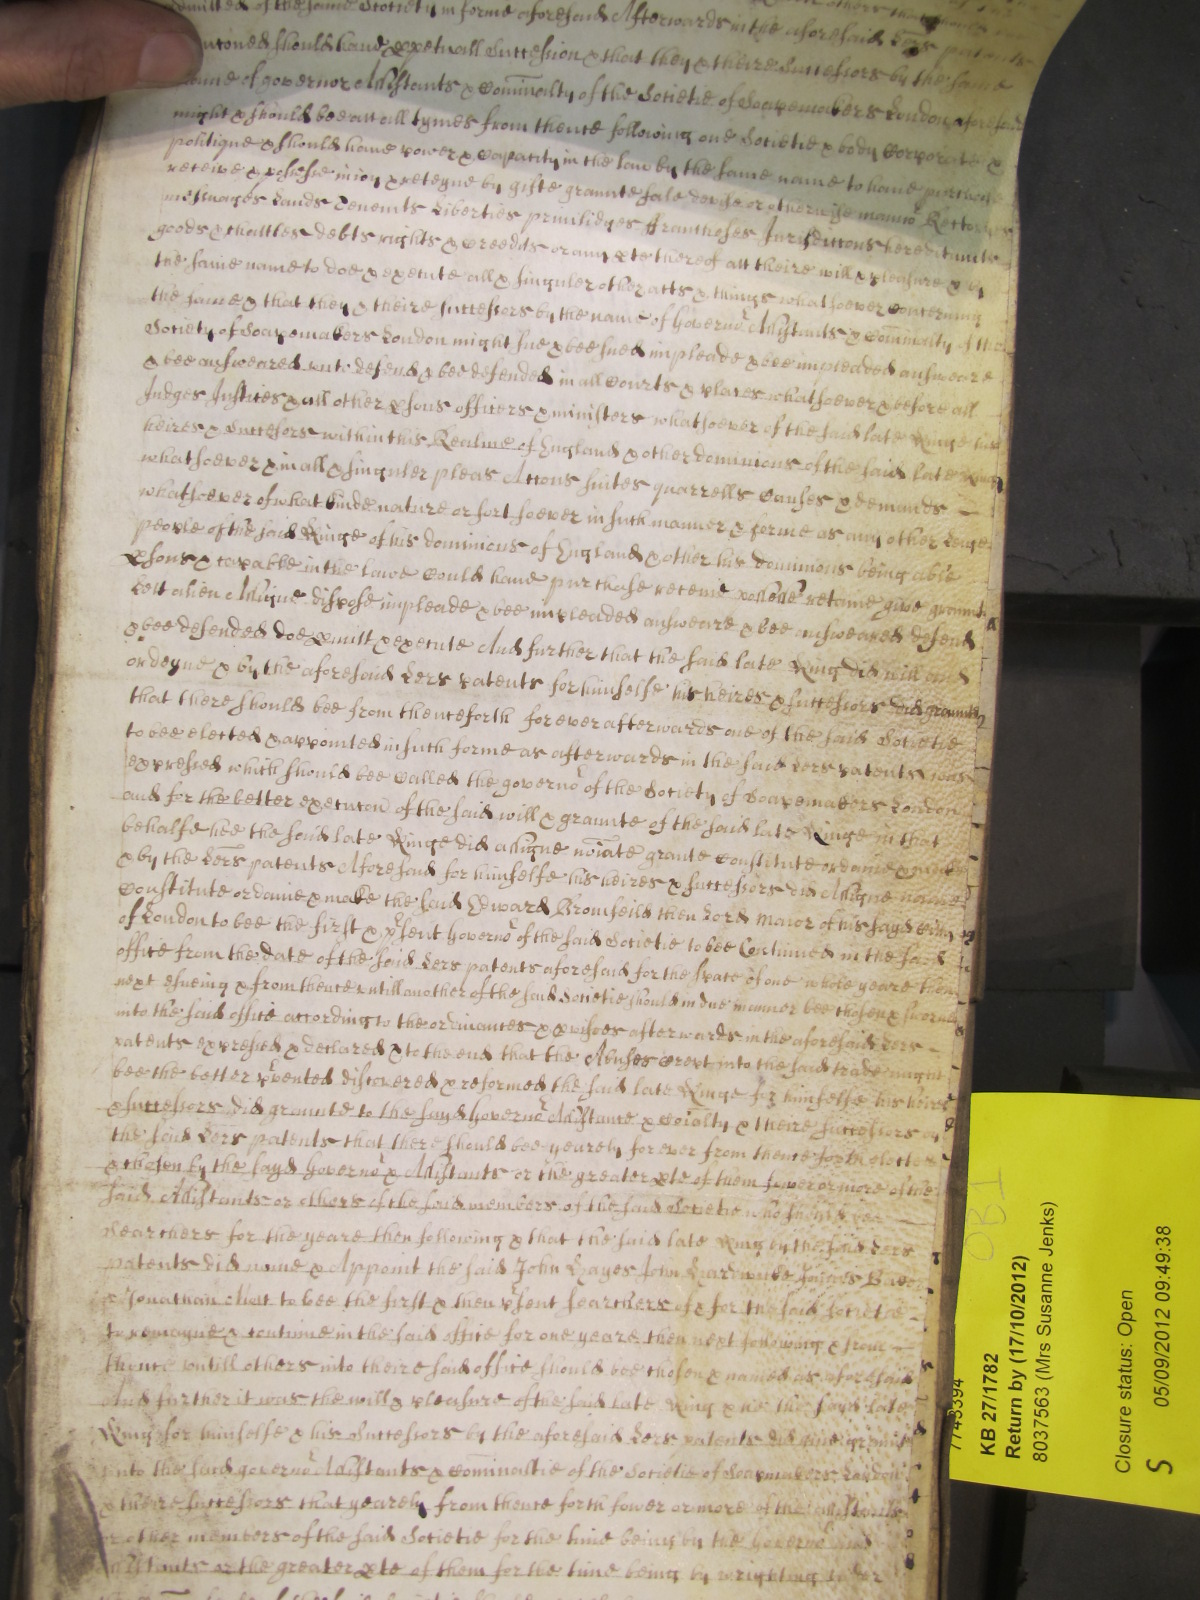 admitted of the same Society in forme aforesaid Afterwards in the aforesaid Lres patents
should have ꝑpetuall Succession & that they & theire Successors by the same
name of governor Assistants & Cominalty of the Societie of Soapemakers London aforesaid
might & should bee att all tymes from thence following one Societie & body Corporate &
politique & should have power & Capacity in the law by the same name to have purchase
receive & possesse inioy & reteyne by gifte graunte sale devise or otherwise mannors Rectories
messuages Lands Tenemts Liberties priviledges ffranchises Jurisdictions hereditamts
goods & chattles debts rights & Creedds or any ꝑte thereof att theire will & pleasure & by
the same name to doe & execute all & singuler other acts & things whatsoever concerning
the same & that they & theire successors by the name of Governor Assistants & Cominalty of the
Society of Soapemakers London might sue & bee sued impleade & bee impleaded answeare
& bee answeared unto defend & bee defended in all Courts & places whatsoever & before all
Judges Justices & all other ꝑsons officers & ministers whatsoever of the said late Kinge his
heires & Successors within this Realme of England & other dominions of the said late King
whatsoever & in all & singuler pleas Accons suites quarrells Causes & demands
whatsoever of what kinde nature or sort soever in such manner & forme as any other Leige
people of the said Kinge of his dominions of England & other his dominions being able
ꝑsons & capable in the lawe Could have purchase receive possesse retaine give graunt
Lett alien Assigne dispose impleade & bee impleaded answeare & bee answeared defend
& bee defended doe ꝑmitt & execute And further that the said late King did will and
ordeyne & by the aforesaid Lers patents for himselfe his heires & successors did graunt
that there should bee from thenceforth for ever afterwards one of the said Societie
to bee elected & appointed in such forme as afterwards in the said Lers patents was
expressed which should bee Called the governor of the Society of Soapemakers London
and for the better execucon of the said will & graunte of the said late Kinge in that
behalfe hee the said late Kinge did assigne noiate grante Constitute ordaine & make
& by the Lers patents Aforesaid for himselfe his heires & successors did Assigne noiate
Constitute ordaine & make the said Edward Bromfeild then Lord Maior of his sayd Citty
of London to bee the first & ꝑsent Governor of the said Societie to bee Continued in the said
office from the date of the said Lers patents aforesaid for the space of one whole yeare then
next ensueing & from thence untill another of the said Societie should in due manner bee chosen & sworne
into the said office according to the ordinances & ꝑvisoes afterwards in the aforesaid Lers
patents expressed & declared & to the end that the Abuses Crept into the said trade might
bee the better ꝑvented discovered & reformed the said late Kinge for himselfe his heires
& successors did graunte to the sayd Governor Assistante & Coialty & theire successors by
the said Lers patents that there should bee yearely for ever from thence forth elected
& chosen by the sayd Governor & Assistants or the greater ꝑte of them fower or more of the
said Assistants or others of the said members of the said Societie who should bee
Searchers for the yeare then following & that the said late King by the said Lers
patents did name & Appoint the said John Hayes John Hardwicke
& Jonathan to bee the first & then ꝑsent searchers of & for the said Societie
to remayne & continue in the said office for one yeare then next following & from
thence untill others into theire said office should bee chosen & named as aforesaid
And further it was the will & pleasure of the said late King & he the sayd late
King for himselfe & his Successors by the aforesaid Lers patents did give & graunt
unto the said governor Assistants & Cominaltie of the Societie of Soapemakers London
& theire successors that yearely from thence forth fower or more of the Assistants
or other members of the said Societie for the time being by the Governor and
Assistants or the greater ꝑte of them for the time being by wrighting under
OB1
7743394
KB 27/1782
Return by (17/10/2012)
8037563 (Mrs Susanne Jenks)
Closure status: Open
05/09/2012 09:49:38
S